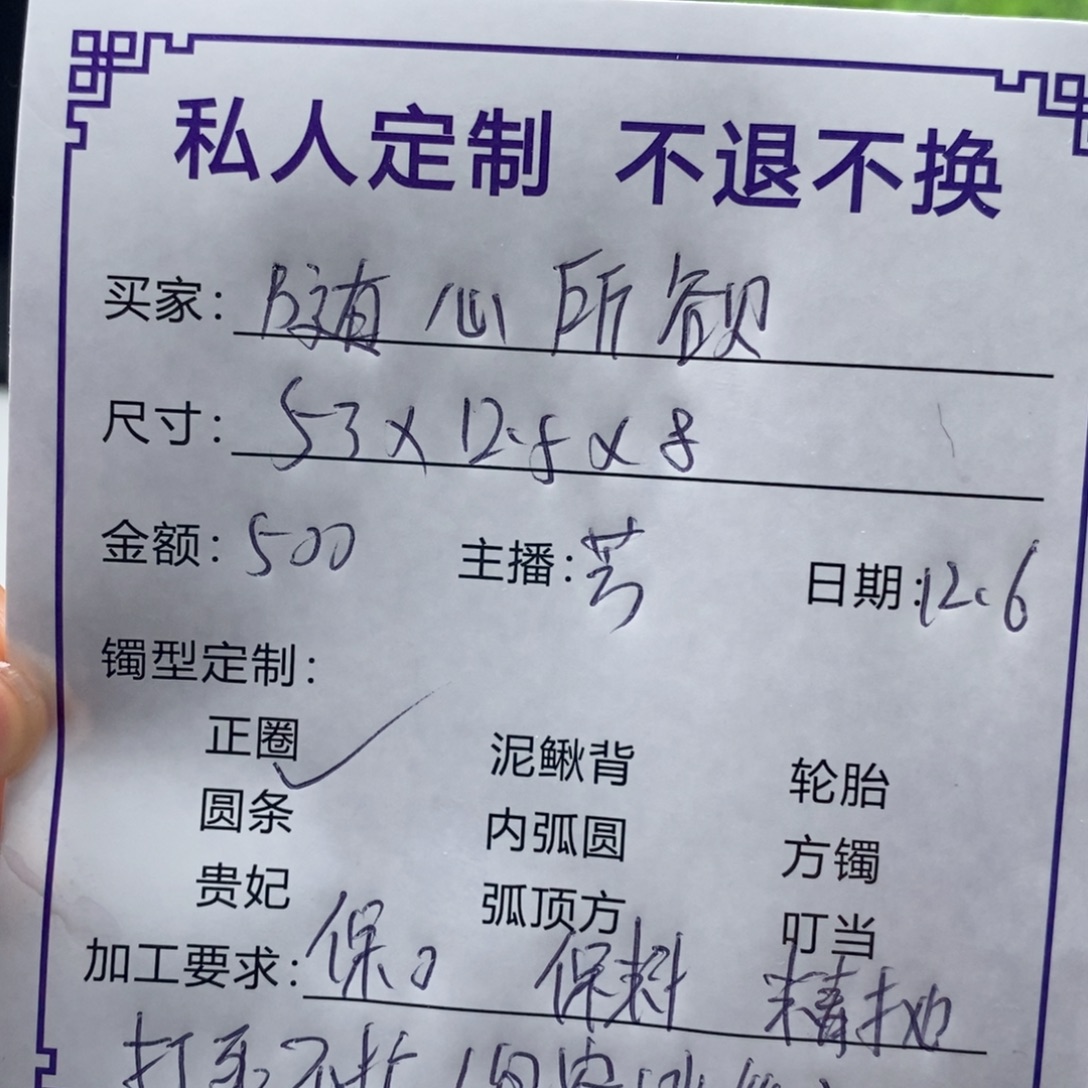 私人定制 不退不换
买家: 随心所欲
尺寸: 53x12.5x8
金额: 500 主播: 芳 日期: 12.6
镯型定制:
正圈 泥鳅背 轮胎
圆条 内弧圆 方镯
贵妃 弧顶方 叮当
加工要求: 保口 保料 精抛